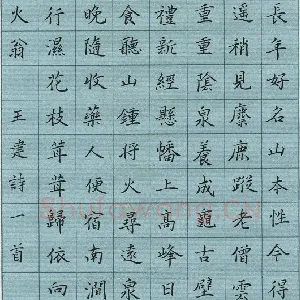 長年好名山本性今得
遙稍見麋鹿蹤老僧雲
重重陰泉養成龜古壁
禮新經懸幡上高峰日
食聽山鐘將火尋遠泉
晚隨收藥人便宿南澗
行濕花枝茸茸歸依向
火翁 王建詩一首